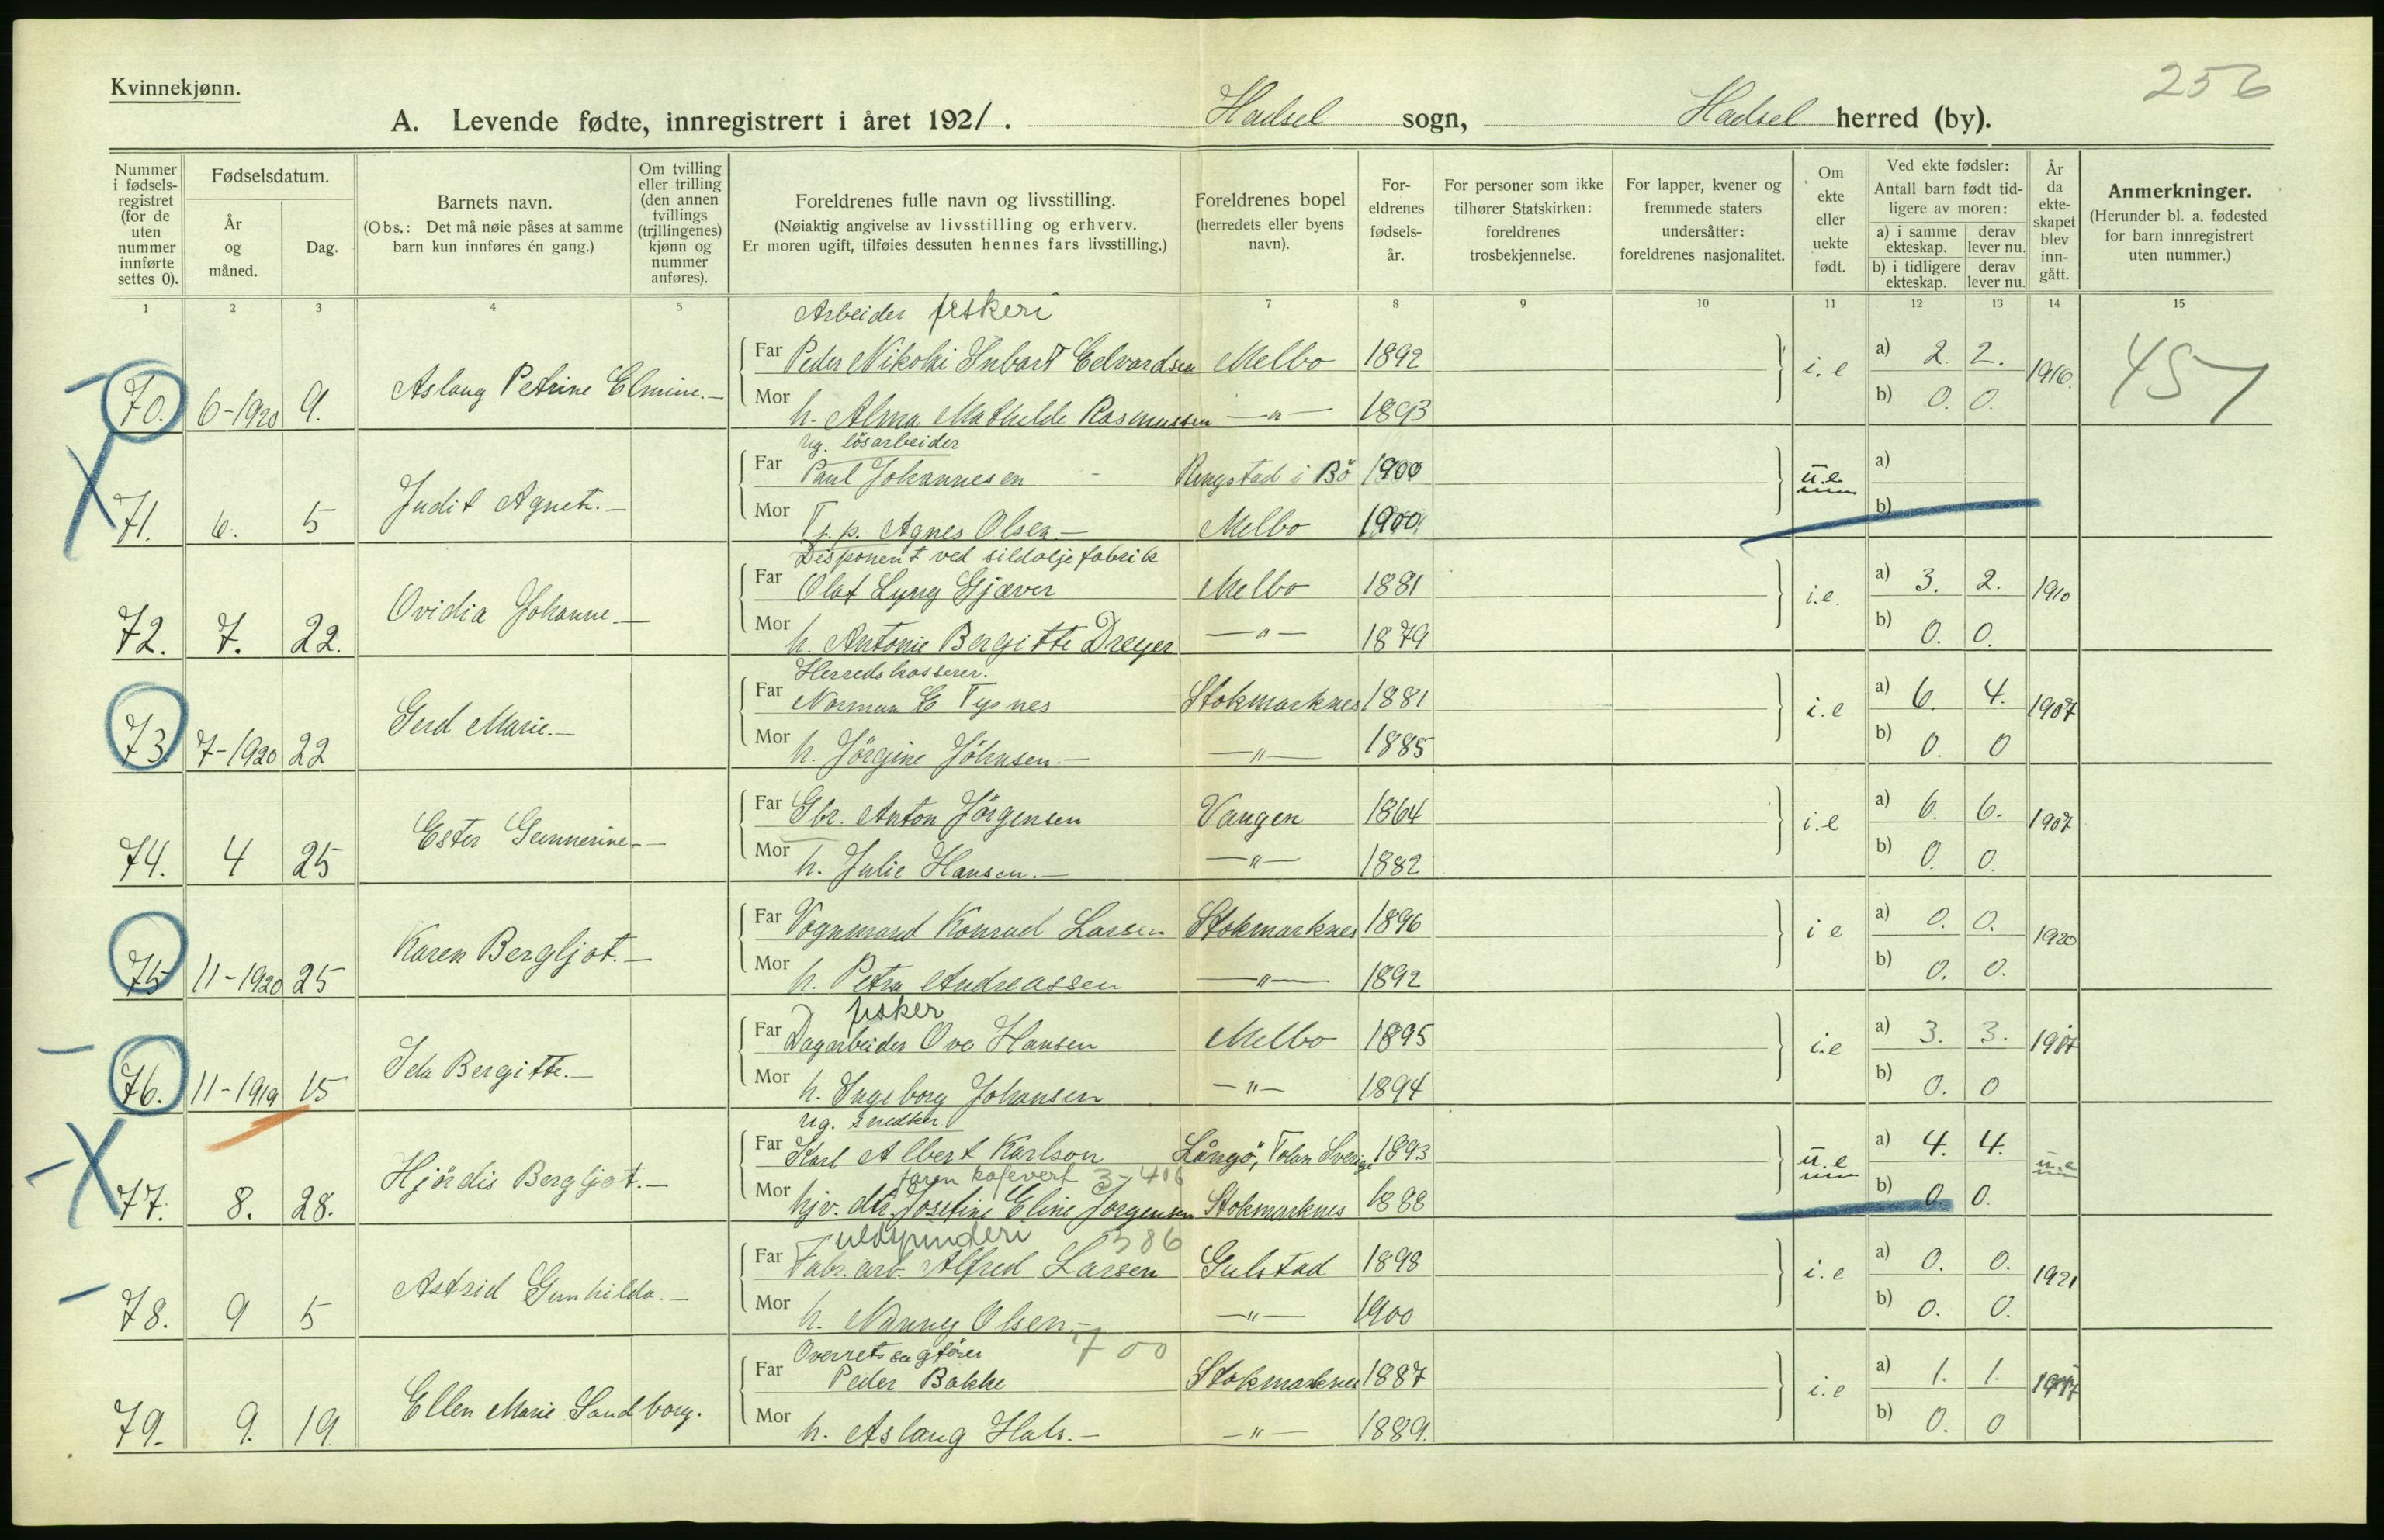 256
Kvinnekjønn.
A. Levende fødte, innregistrert i året 1921. Hadsel sogn, Hadsel herred (by).
Nummer i fødsels-registret (for de uten nummer innførte settes 0).
Fødselsdatum.
År og måned.
Dag.
Barnets navn.
(Obs.: Det må nøie påses at samme barn kun innføres én gang.)
Om tvilling eller trilling (den annen tvillings (trillingenes) kjønn og nummer anføres).
Foreldrenes fulle navn og livsstilling.
(Nøiaktig angivelse av livsstilling og erhverv.
Er moren ugift, tilføies dessuten hennes fars livsstilling.)
Foreldrenes bopel (herredets eller byens navn).
For-eldrenes fødsels-år.
For personer som ikke tilhører Statskirken: foreldrenes trosbekjennelse.
For lapper, kvener og fremmede staters undersåtter: foreldrenes nasjonalitet.
Om ekte eller uekte født.
Ved ekte fødsler:
Antall barn født tid-ligere av moren:
a) i samme ekteskap. derav lever nu.
b) i tidligere ekteskap. derav lever nu.
År da ekte-skapet blev inn-gått.
Anmerkninger.
(Herunder bl. a. fødested for barn innregistrert uten nummer.)
1 2 3 4 5 7 8 9 10 11 12 13 14 15
Arbeider fiskeri
Far Peder Nikolai Hubart Edvardsen Melbo 1892 a) 2. 2.
70. 6-1920 9. Aslaug Petrine Elmine.- i.e 1916. 457
Mor h. Alma Mathilde Rasmussen -"- 1893 b) 0. 0.
Ug. lösarbeider
Far Paul Johannesen - Ringstad i Bö 1900 a)
71. 6. 5 Judit Agnete.- u.e
Mor Tj.p. Agnes Olsen- Melbo 1900. b)
Disponent ved sildoljefabrik
Far Olaf Lyng Gjæver Melbo 1881 a) 3. 2.
72. 7. 22. Ovidia Johanne.- i.e. 1910
Mor h. Antonie Bergitte Dreyer -"- 1879 b) 0. 0.
Herredskasserer.
Far Norman E Tysnes Stokmarknes 1881 a) 6. 4.
73. 7-1920 22 Gerd Marie.- i.e 1907
Mor h. Jörgine Johnsen.- -"- 1885 b) 0. 0
Far Gbr. Anton Jörgensen Vangen 1864 a) 6. 6.
74. 4 25 Ester Gunnerine.- i.e 1907
Mor h. Julie Hansen.- -"- 1882 b) 0. 0.
Far Vognmand Konrad Larsen Stokmarknes 1896 a) 0. 0.
75 11-1920 25 Karen Bergljot.- i e 1920
Mor h. Petra Andreassen -"- 1892 b) 0. 0.
fisker
Far Dagarbeider Ove Hansen Melbo 1895 a) 3. 3.
76. 11-1919 15 Ida Bergitte.- i.e 1917
Mor h. Ingeborg Johansen -"- 1894 b) 0. 0
Ug. snedker
Far Karl Albert Karlson Långö, Sverige 1893 a) 4. 4.
faren kafevert 3-406
77. 8. 28. Hjördis Bergljot.- u.e u.e
Mor hjv. dtr. Josefine Eline Jorgensen Stokmarknes 1888 b) 0 0.
uldspinderi 386
Far Fabr. arb. Alfred Larsen Gulstad 1898 a) 0. 0.
78. 9 5 Astrid Gunhilda.- i.e 1921
Mor h. Nanny Olsen.- -"- 1900 b) 0. 0.
700
Overretssagförer
Far Peder Bakke Stokmarknes 1887 a) 1. 1.
79. 9. 19 Ellen Marie Sandborg. i.e
Mor h. Aslaug Hals.- -"- 1889. b) 0. 0